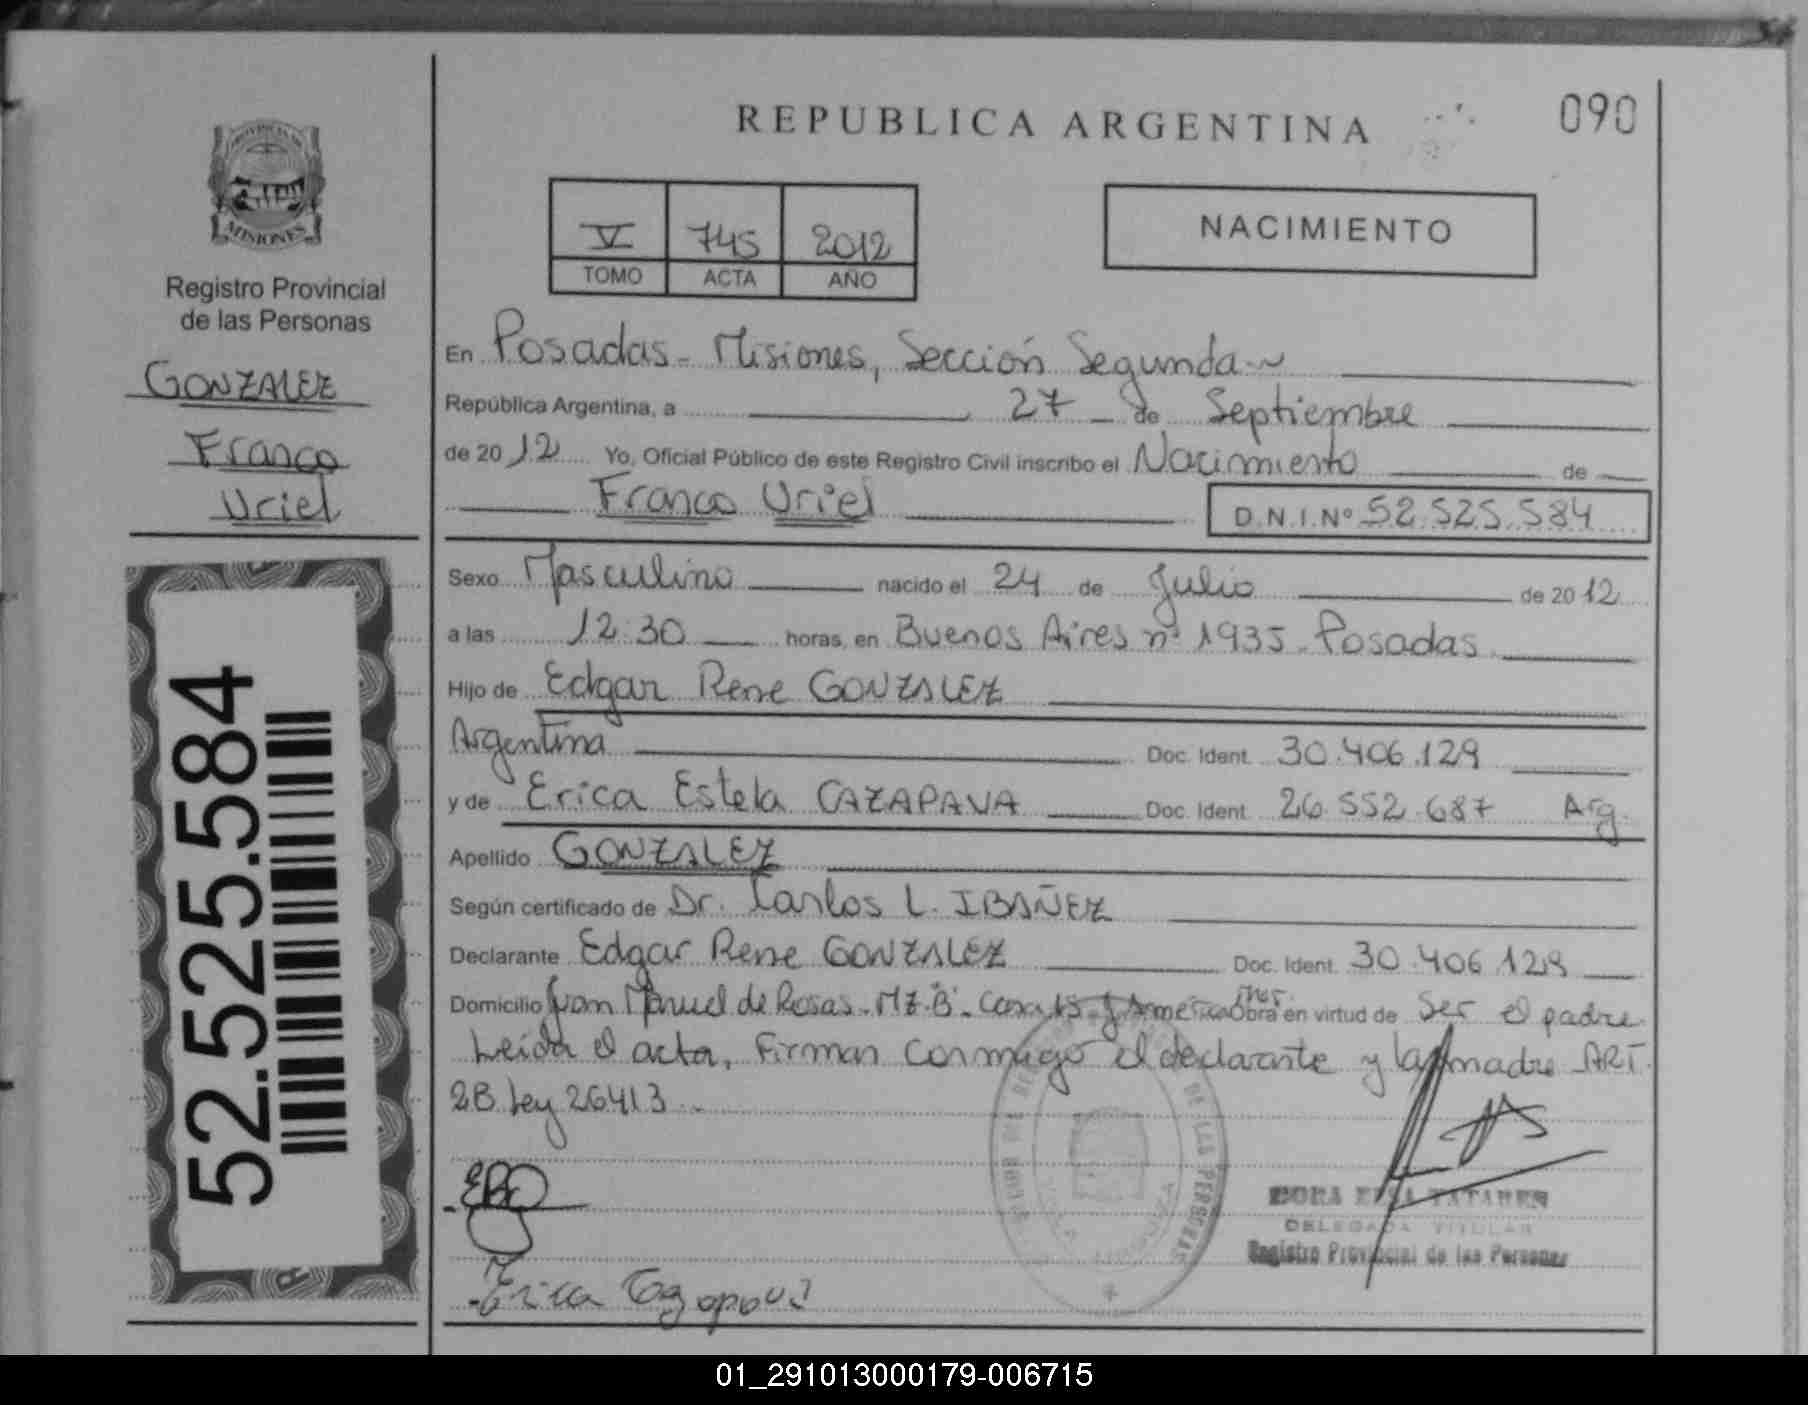 REPUBLICA ARGENTINA
090
PROVINCIA
MISIONES
Registro Provincial
de las Personas
GONZALEZ
Franco
Uriel
V 745 2012
TOMO ACTA AÑO
NACIMIENTO
En Posadas - Misiones, Sección Segunda
República Argentina, a 27 de Septiembre
de 2012 Yo, Oficial Público de este Registro Civil inscribo el Nacimiento de
Franco Uriel D.N.I.Nº 52.525.584
Sexo Masculino nacido el 24 de Julio de 2012
a las 12:30 horas, en Buenos Aires nº 1935 - Posadas
Hijo de Edgar Rene GONZALEZ
Argentina Doc. Ident. 30.406.129
y de Erica Estela CAZAPAVA Doc. Ident. 26.552.687 Arg.
Apellido GONZALEZ
Según certificado de Dr. Carlos L. IBAÑEZ
Declarante Edgar Rene GONZALEZ Doc. Ident. 30.406.129
Domicilio Juan Manuel de Rosas - MZ "B" - Casa Obra en virtud de Ser el padre
Leida el acta, Firman conmigo el declarante y la madre ART.
28 Ley 26413
DE LAS PERSONAS
Erica
DORA TATAREN
DELEGADA TITULAR
Registro Provincial de las Personas
52.525.584
01_291013000179-006715